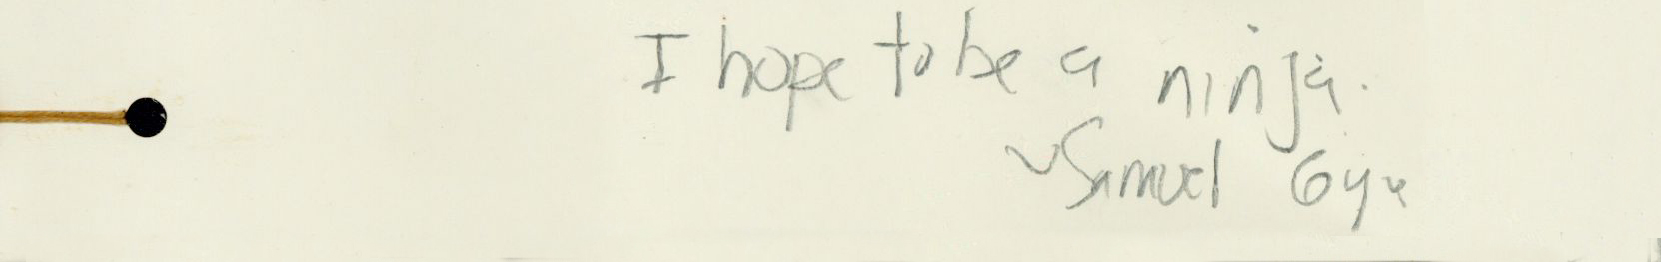 I hope to be a ninja.
~Samuel 6yr